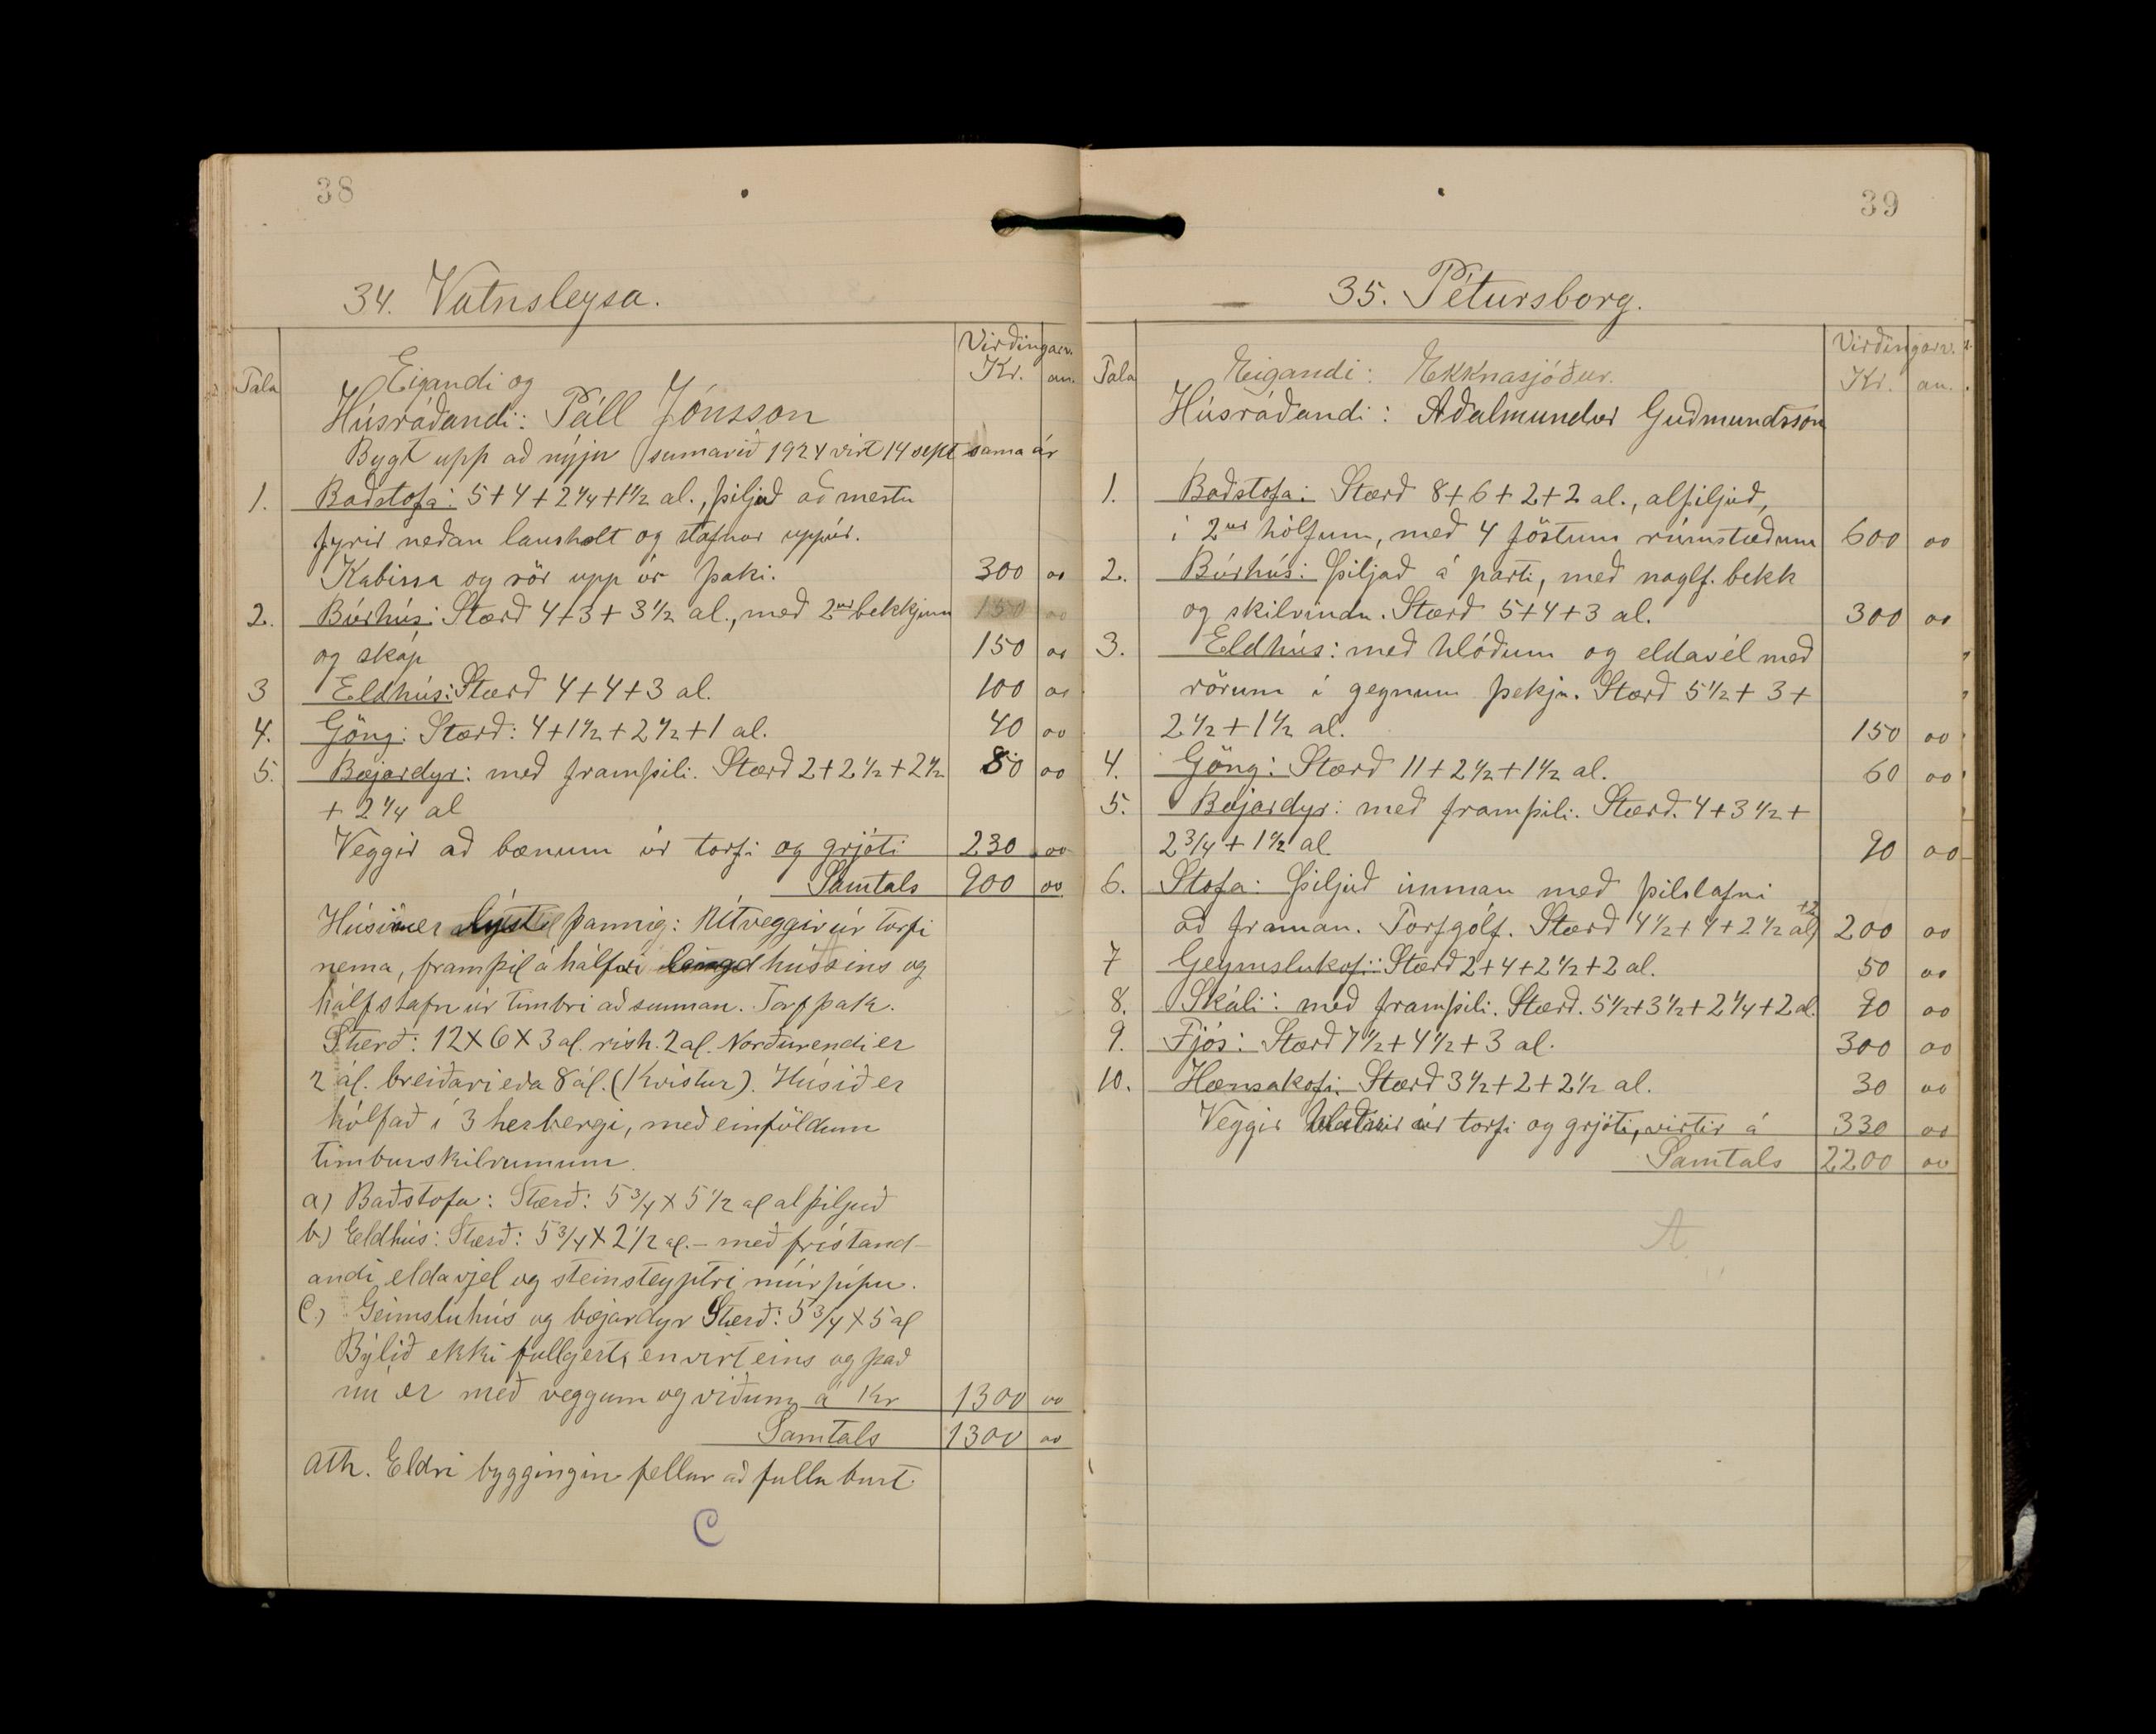 38
34. Vatnsleysa.
Tala
Virðingarv.
Kr. au.
Eigandi og
Húsráðandi: Páll Jónsson
Bygt upp að nýju sumarið 1924 virt 14 sept sama ár
1. Baðstofa: 5+4+2 1/4+1 1/2 al., þiljað að mestu
fyrir neðan lausholt og stafnar uppúr.
Kabissa og rör upp úr þaki. 300 00
2. Búrhús: Stærð 4+3+3 1/2 al., með 2ur bekkjum 150 00
og skáp 150 00
3 Eldhús: Stærð 4+4+3 al. 100 00
4. Göng: Stærð: 4+1 1/2+2 1/2+1 al. 40 00
5. Bæjardyr: með framþili. Stærð 2+2 1/2+2 1/2 80 00
+ 2 1/4 al
Veggir að bænum úr torfi og grjóti 230 00
Samtals 900 00
Húsinu er lýst þannig: Útveggir úr torfi
nema, framþil á hálfri lengd hússins og
hálfstafn úr timbri að sunnan. Torfþak.
Stærð: 12X6X3 al. rish. 2 al. Norðurendi er
2 ál. breiðari eða 8 ál. (Kvistur). Húsið er
hólfað í 3 herbergi, með einföldum
timburskilrúmum.
a) Baðstofa: Stærð: 5 3/4 X 5 1/2 al alþiljuð
b) Eldhús: Stærð: 5 3/4 X 2 1/2 al. – með frístand-
andi eldavjel og steinsteyptri múrpípu.
C) Geimsluhús og bæjardyr Stærð: 5 3/4 X 5 al
Býlið ekki fullgert, en virt eins og það
nú er með veggum og viðum á Kr 1300 00
Samtals 1300 00
Ath. Eldri byggingin fellur að fullu burt.
C
39
35. Pétursborg.
Tala
Virðingarv.
Kr. au.
Eigandi: Ekknasjóður.
Húsráðandi: Aðalmundur Guðmundsson
1. Baðstofa: Stærð 8+6+2+2 al., alþiljuð,
í 2ur hólfum, með 4 föstum rúmstæðum 600 00
2. Búrhús: Þiljað á parti, með naglf. bekk
og skilvindu. Stærð 5+4+3 al. 300 00
3. Eldhús: með hlóðum og eldavél með
rörum í gegnum þekju. Stærð 5 1/2+3+
2 1/2+1 1/2 al. 150 00
4. Göng: Stærð 11+2 1/2+1 1/2 al. 60 00
5. Bæjardyr: með framþili. Stærð. 4+3 1/2+
2 3/4+1 1/2 al. 90 00
6. Stofa: Þiljuð innan með þilstafni
að framan. Torfgólf. Stærð 4 1/2+4+2 1/2 +2 al, 200 00
7 Geymslukofi: Stærð 2+4+2 1/2+2 al. 50 00
8. Skáli: með framþili. Stærð. 5 1/2+3 1/2+2 1/4+2 al. 90 00
9. Fjós: Stærð 7 1/2+4 1/2+3 al. 300 00
10. Hænsakofi. Stærð 3 1/2+2+2 1/2 al. 30 00
Veggir hlaðnir úr torfi og grjóti, virtir á 330 00
Samtals 2200 00
A.